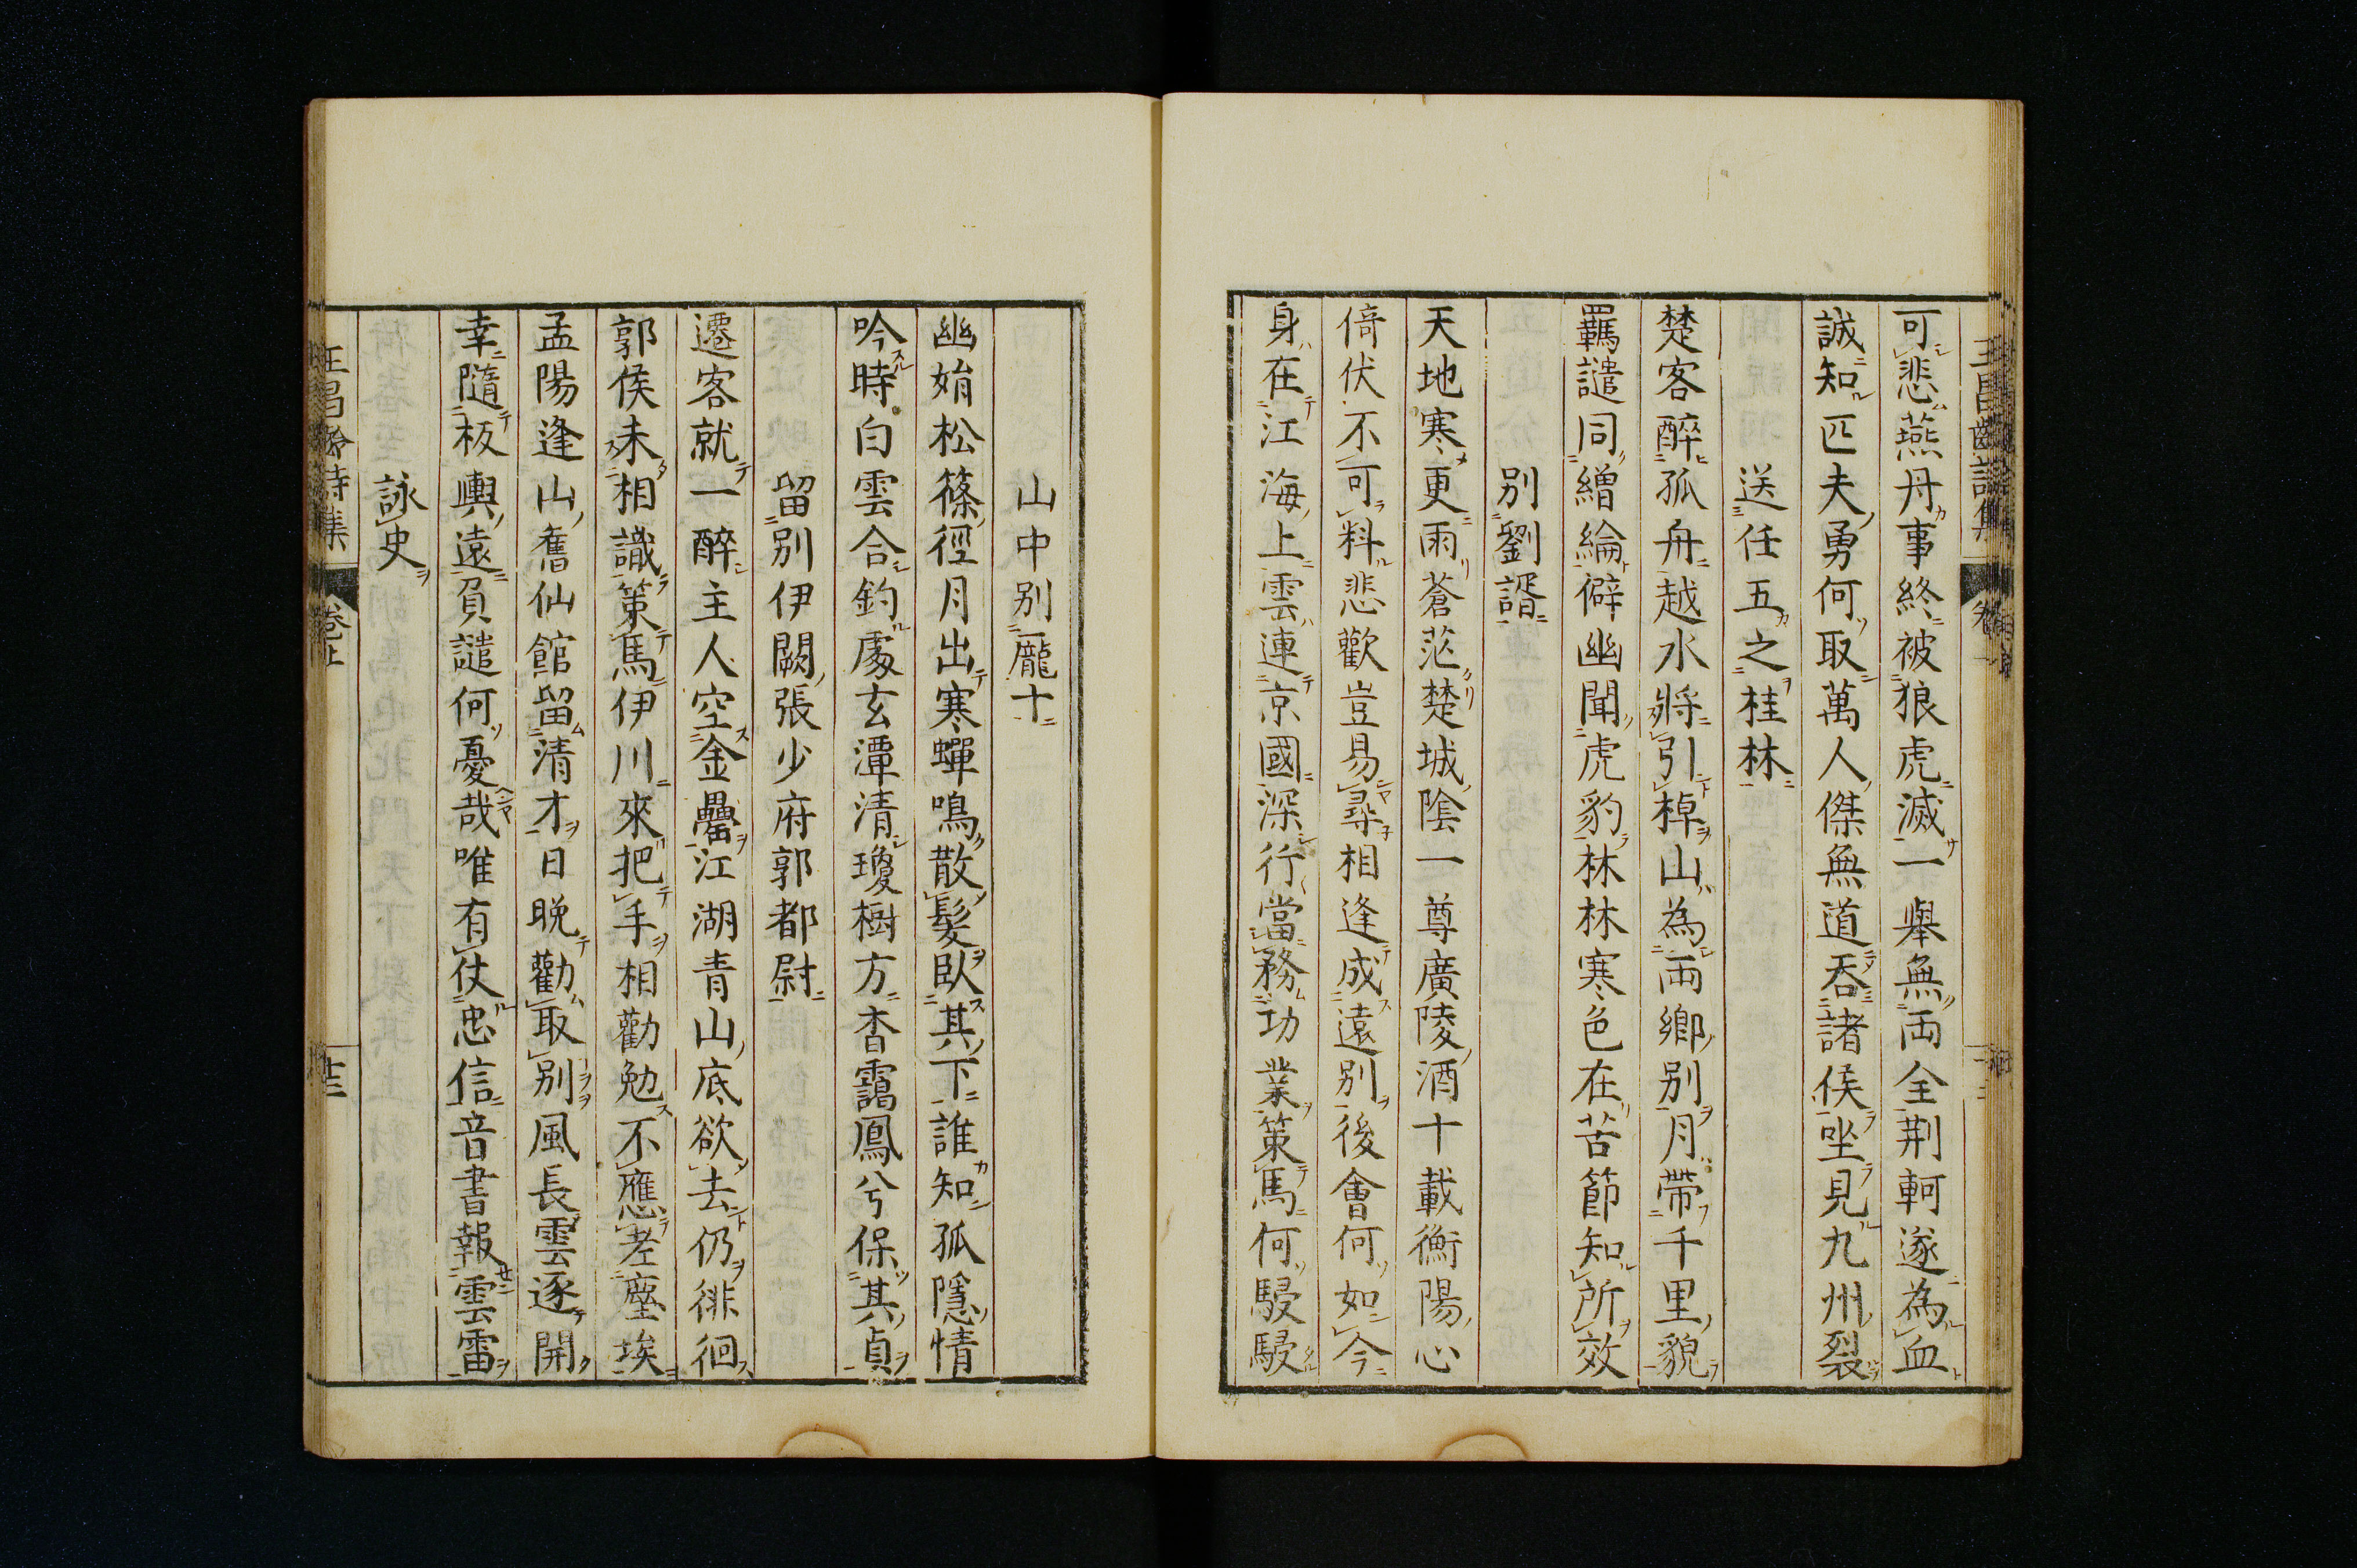 可悲燕丹事終被狼虎滅一舉無両全荆軻遂為血
誠知匹夫勇何取萬人傑無道吞諸侯坐見九州裂
送任五之桂林
楚客醉孤舟越水將引棹山為両鄉別月帶千里貌
羈譴同繒綸僻幽聞虎豹林林寒色在苦節知所效
別劉諝
天地寒更雨蒼茫楚城陰一尊廣陵酒十載衡陽心
倚伏不可料悲歡豈易尋相逢成遠別後會何如今
身在江海上雲連京國深行當務功業策馬何駸駸
山中別龐十
幽娟松篠徑月出寒蟬鳴散髮臥其下誰知孤隱情
吟時白雲合釣處玄潭清瓊樹方杳靄鳳兮保其貞
留別伊闕張少府郭都尉
遷客就一醉主人空金罍江湖青山底欲去仍徘徊
郭侯未相識策馬伊川來把手相勸勉不應老塵埃
孟陽逢山舊仙館留清才日晚勸取別風長雲逐開
幸隨板輿遠負譴何憂哉唯有仗忠信音書報雲雷
詠史
王昌齡詩集
卷上
廿三